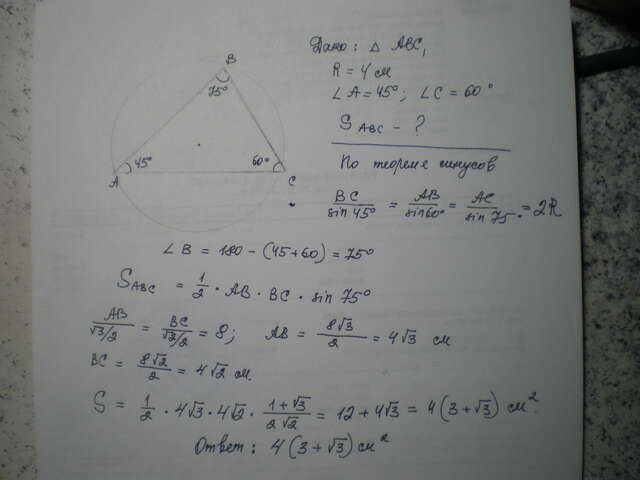 B
75°
45°
60°
A
C
Дано: △ ABC,
R = 4 см
∠A = 45°; ∠C = 60°
S ABC - ?
По теореме синусов
BC/sin 45° = AB/sin 60° = AC/sin 75° = 2R
∠B = 180 - (45 + 60) = 75°
S ABC = 1/2 · AB · BC · sin 75°
AB/(√3/2) = BC/(√2/2) = 8; AB = 8√3/2 = 4√3 см
BC = 8√2/2 = 4√2 см.
S = 1/2 · 4√3 · 4√2 · (1+√3)/(2√2) = 12 + 4√3 = 4(3+√3) см².
Ответ: 4(3+√3) см²